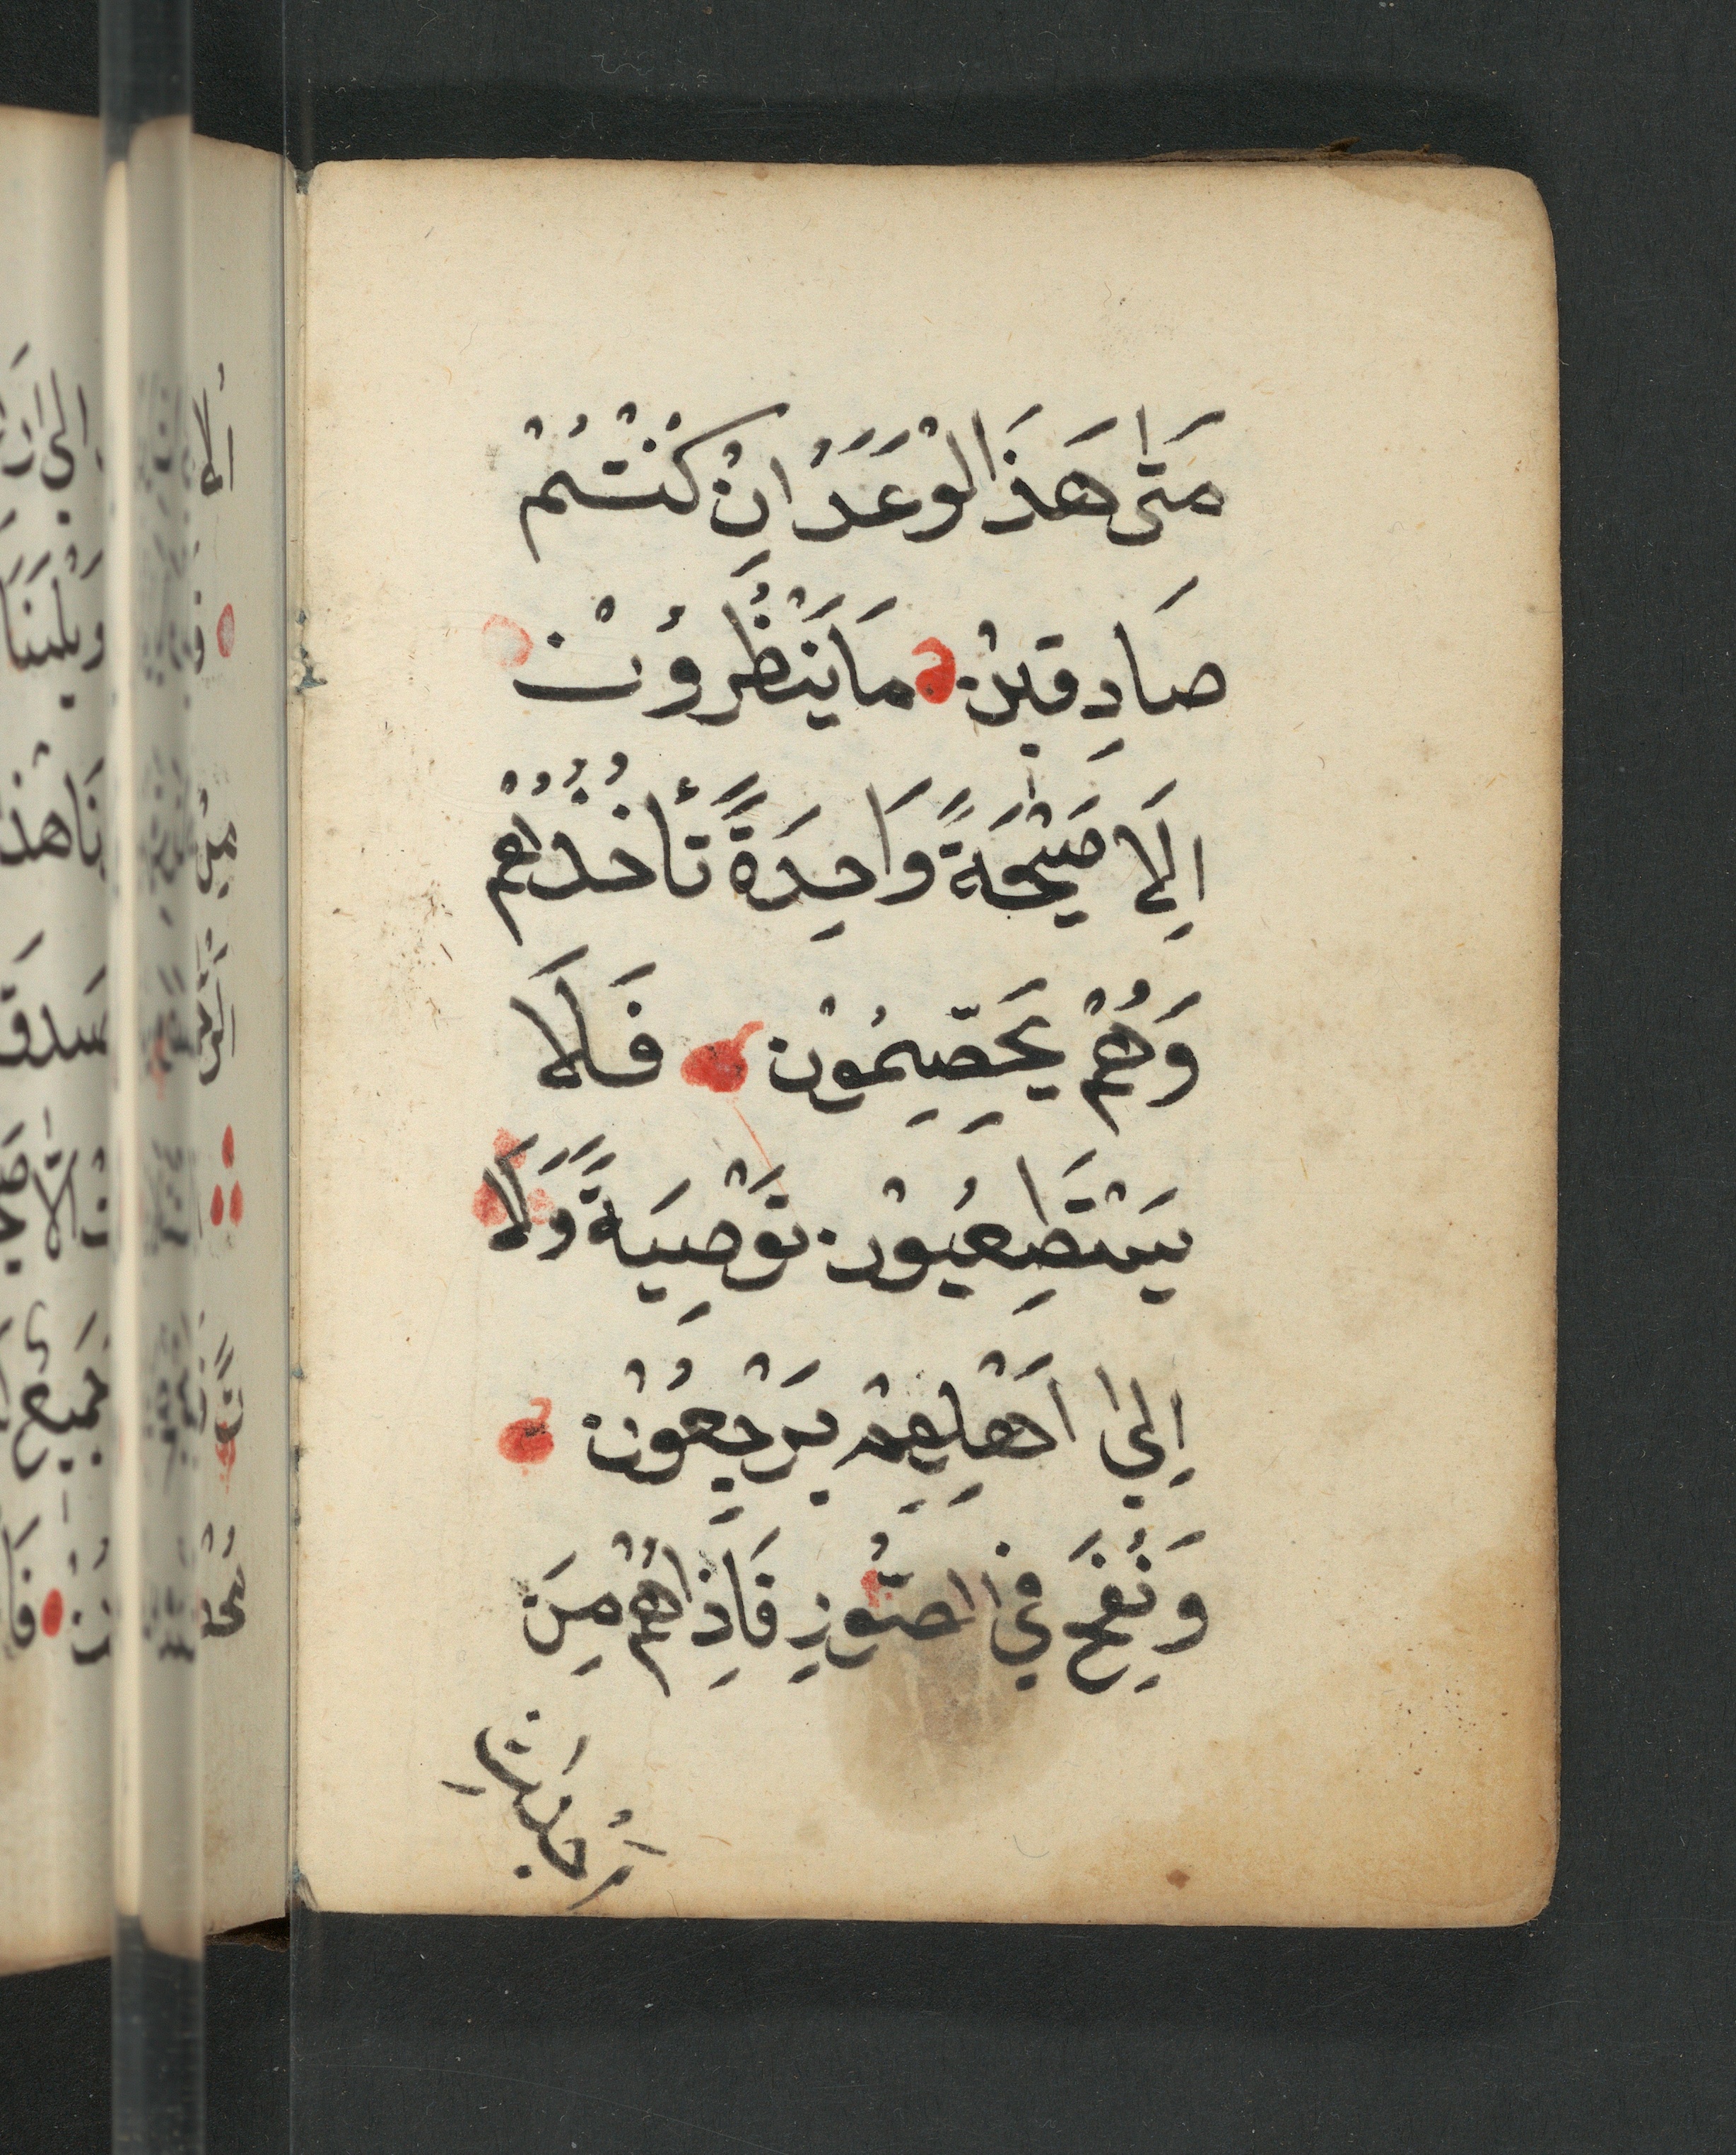 مَتٰى هَذَا الْوَعَدُ اِنْ كُنْتُمْ
صَادِقِيْنْ مَا يَنْظُرُوْنْ
اِلَا صَيْحَةً وَاحِدَةً تَأخُذُهُمْ
وَهُمْ يَخِصِّمُوْن فَلَا
يَسْتَطِعُيوْن تَوْصِيَةً وَلَا
اِلىٰ اَهْلِهِمْ يَرْجِعُوْن
وَنُفِخَ فِي اصُّوْرِ فَاِذَاهُمْ مِنَ